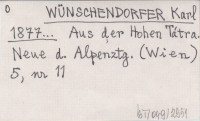 0
WÜNSCHENDORFER Karl
1877... Aus der Hohen Tátra.
Neue d. Alpenztg. (Wien)
5, nr 11